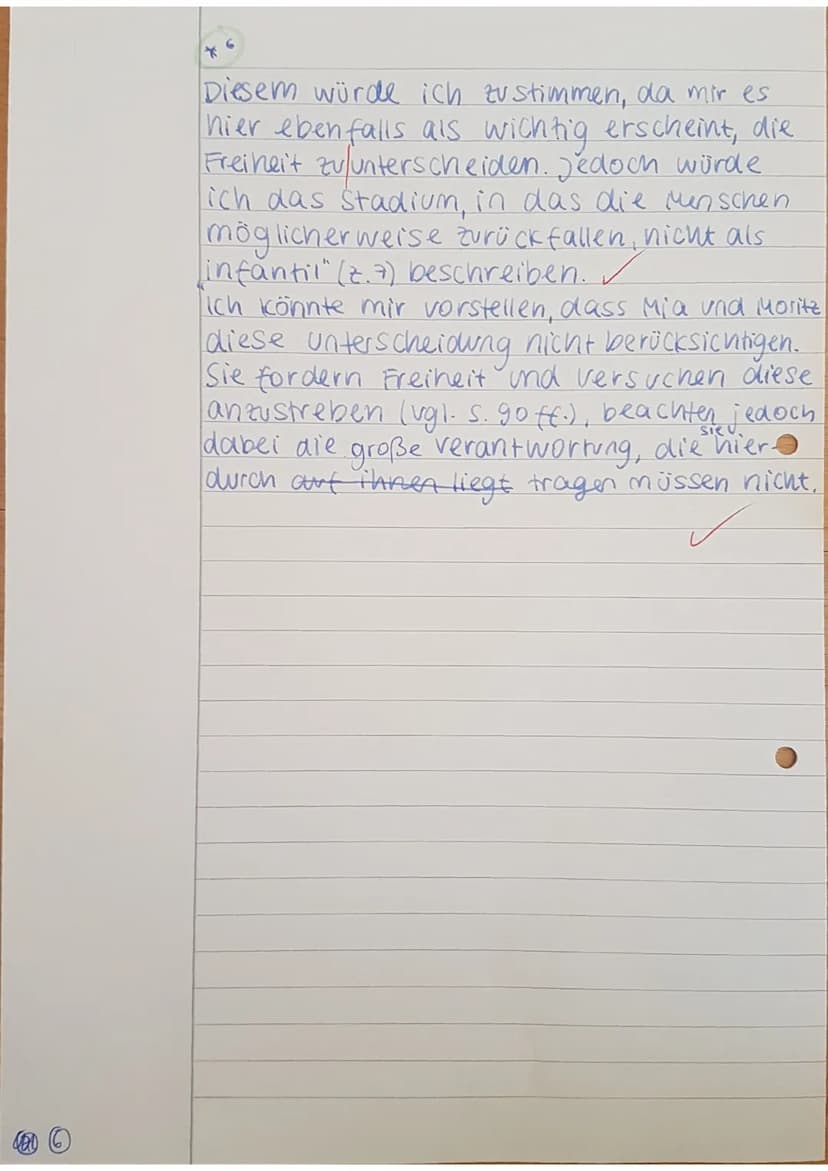 * 6
Diesem würde ich zustimmen, da mir es
hier ebenfalls als wichtig erscheint, die
Freiheit zu unterscheiden. Jedoch würde
ich das Stadium, in das die Menschen
möglicherweise zurückfallen, nicht als
„infantil“ (Z. 7) beschreiben. ✓
Ich könnte mir vorstellen, dass Mia und Moritz
diese Unterscheidung nicht berücksichtigen.
Sie fordern Freiheit und versuchen diese
anzustreben (vgl. S. 90 ff.), beachten jedoch
dabei die große Verantwortung, die sie hier-
durch auf ihnen liegt tragen müssen nicht.
✓
6